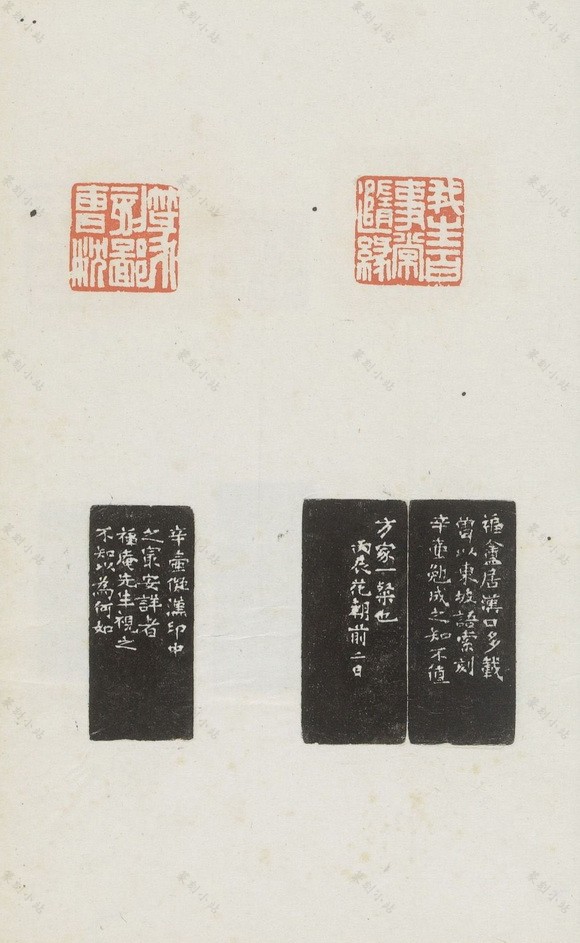 我生百
事常
隨緣
福盦居漢口多載
曾以東坡語索刻
辛壺勉成之知不值
方家一粲也
丙辰花朝前二日
辛壺儗漢印中
之㝡安詳者
福庵先生視之
不知以為何如
篆刻小站